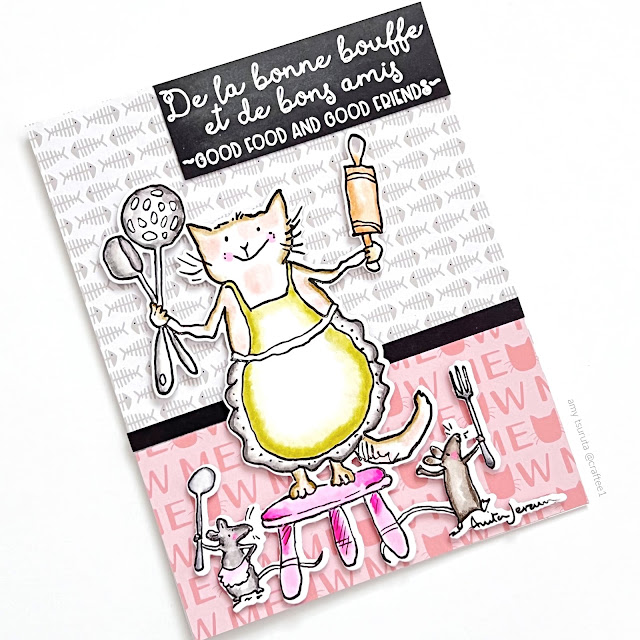 De la bonne bouffe
et de bons amis
~GOOD FOOD AND GOOD FRIENDS~
MEOW ME
MEOW MEOW
Anita Jeram
amy tsuruta @craftee1